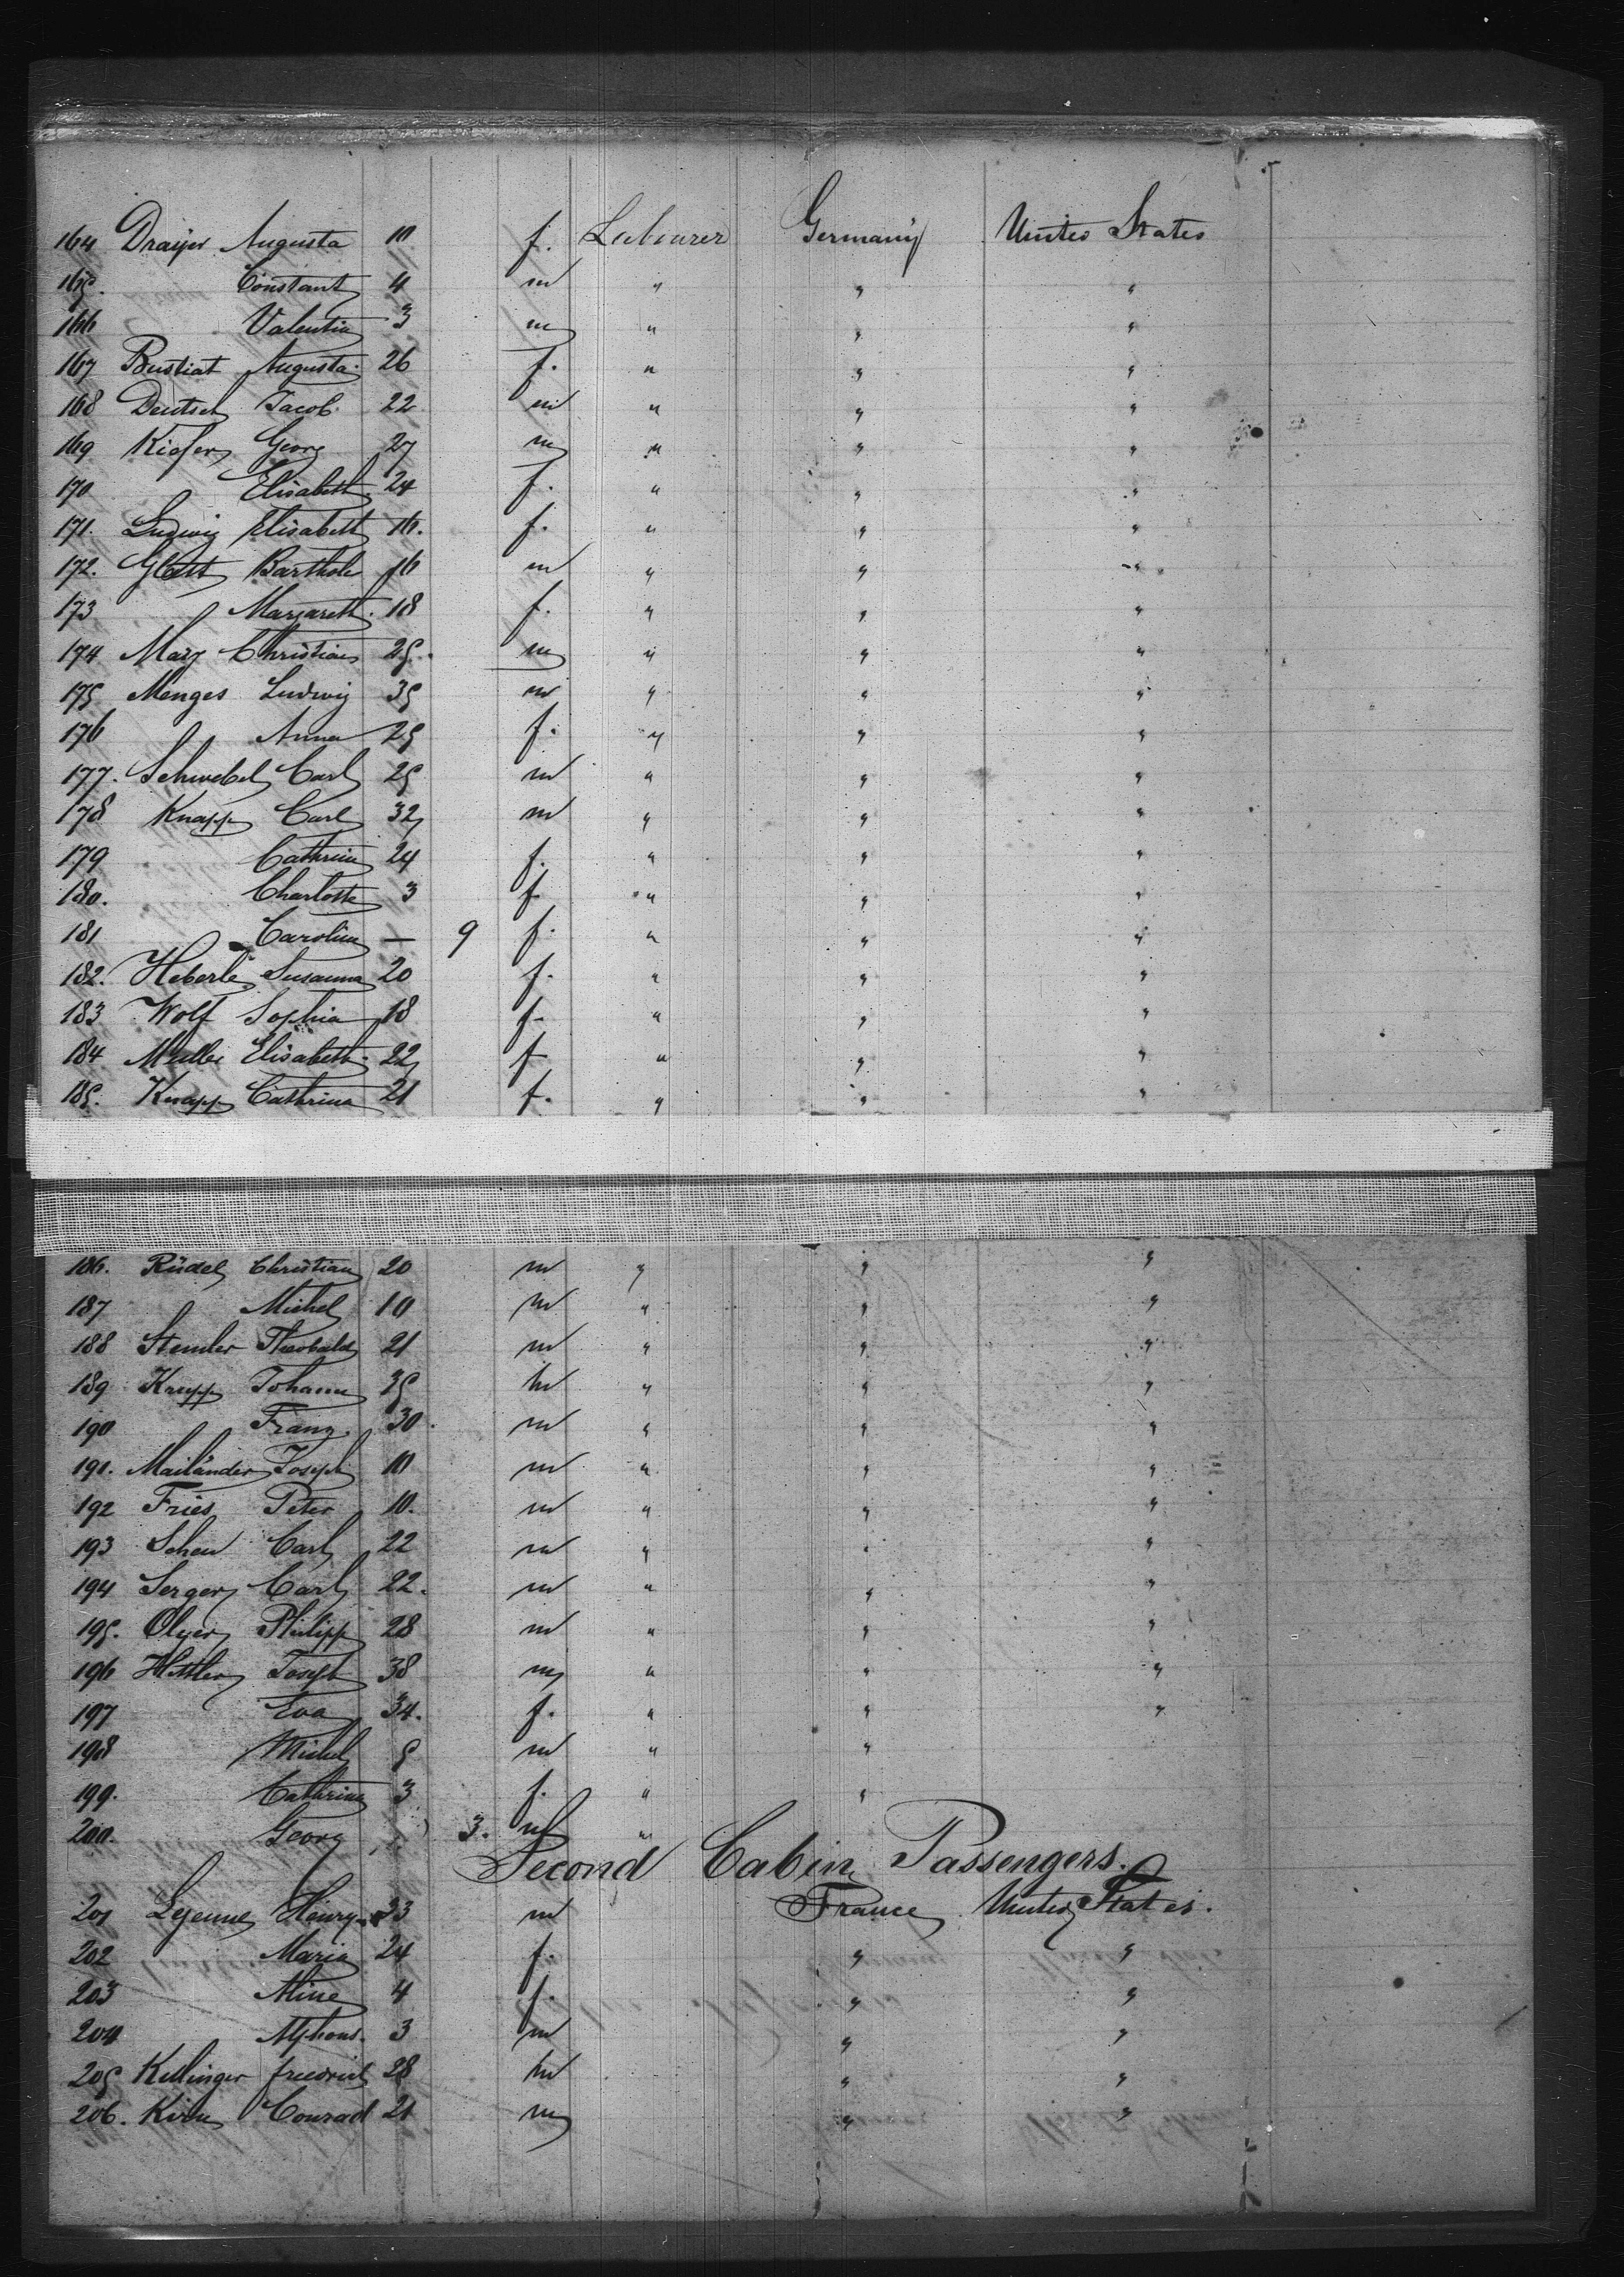 164 Draijer Augusta 10 f. Labourer Germany United States
165. Constant 4 m " " "
166 Valentin 3 m " " "
167 Bustiat Augusta 26 f. " " "
168 Deutsch Jacob 22 m " " "
169 Kiefer Georg 27 m " " "
170 Elisabeth 24 f. " " "
171. Ludwig Elisabeth 16. f. " " "
172. Glatt Barthole 16 m " " "
173 Margareth 18 f. " " "
174 Mary Christian 25. m " " "
175 Menges Ludwig 35 m " " "
176 Anna 25 f. " " "
177. Schwebel Carl 25 m " " "
178 Knapp Carl 32 m " " "
179 Cathrina 24 f. " " "
180. Charlotte 3 f. " " "
181 Carolina — 9 f. " " "
182. Heberle Susanna 20 f. " " "
183 Wolf Sophia 18 f. " " "
184 Muller Elisabeth 22 f " " "
185. Knapp Cathrina 21 f. " " "
186. Rüdel Christian 20 m " " "
187 Michel 10 m " " "
188 Stemler Theobald 21 m " " "
189 Krupp Johann 35 m " " "
190 Franz 30. m " " "
191. Mailänder Joseph 10 m " " "
192 Fries Peter 10. m " " "
193 Scheu Carl 22 m " " "
194 Serger Carl 22. m " " "
195. Olyer Philipp 28 m " " "
196 Hettler Joseph 38 m " " "
197 Eva 34. f. " " "
198 Michel 5 m " "
199. Cathrina 3 f. " "
200. Georg 3. m "
Second Cabin Passengers.
201 Lejeune Henry 23 m France United States.
202 Maria 24 f. " "
203 Aline 4 f. " "
204 Alphons. 3 m " "
205 Kellinger friedrich 28 m " "
206. Kirn Conrad 21 m " "